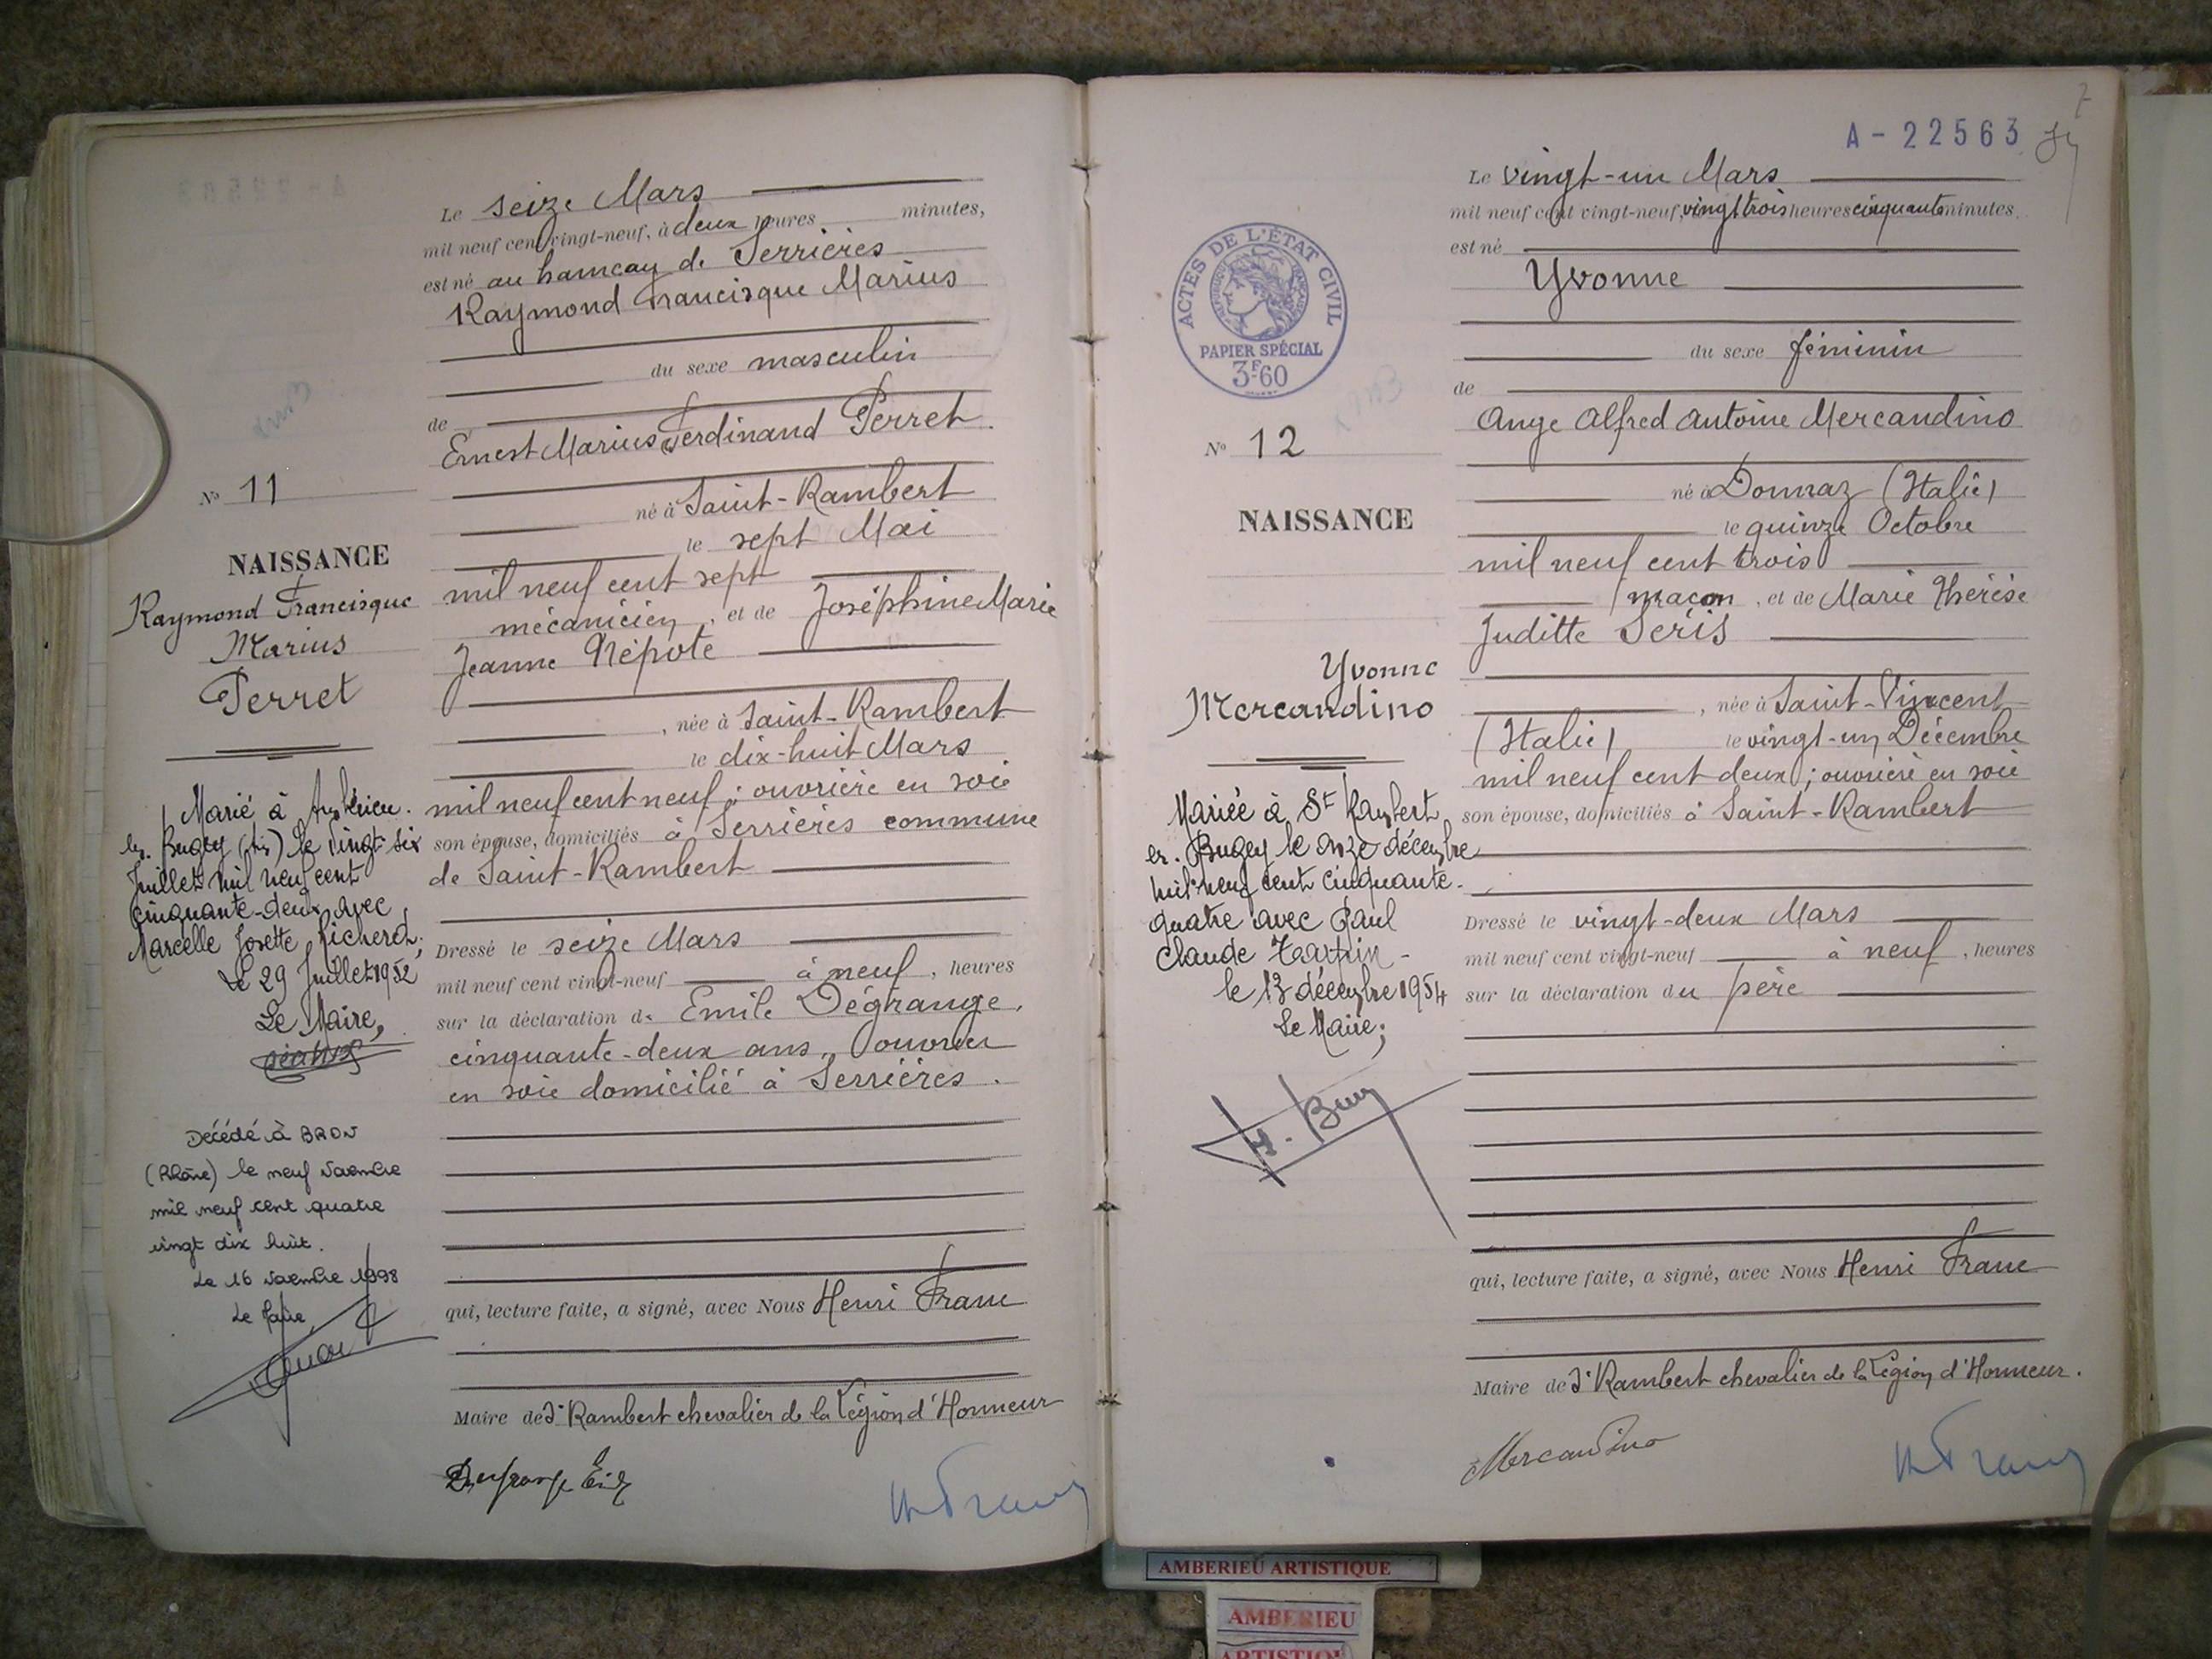 Le seize Mars
mil neuf cent vingt-neuf, à deux heures minutes,
est né au hameau de Serrières
Raymond Francisque Marius
du sexe masculin
de
Ernest Marius Ferdinand Perret.
né à Saint-Rambert
le sept Mai
mil neuf cent sept
mécanicien, et de Joséphine Marie
Jeanne Népote
, née à Saint-Rambert
le dix-huit Mars
mil neuf cent neuf; ouvrière en soie
son épouse, domiciliés à Serrières commune
de Saint-Rambert
Dressé le seize Mars
mil neuf cent vingt-neuf à neuf, heures
sur la déclaration de Emile Dégrange,
cinquante-deux ans, ouvrier
en soie domicilié à Serrières.
qui, lecture faite, a signé, avec Nous Henri Franc
Maire de St Rambert chevalier de la Légion d'Honneur
No 11
NAISSANCE
Raymond Francisque
Marius
Perret
Marié à Ambérieu.
en. Bugey (Ain) le vingt-six
Juillet mil neuf cent
cinquante-deux avec
Marcelle Josette
le 29 Juillet 1952
Le Maire,
Décédé à BRON
(Rhône) le neuf novembre
mil neuf cent quatre
vingt dix huit.
Le 16 novembre 1998
Le Maire
A-22563
7
Le vingt-un Mars
mil neuf cent vingt-neuf, vingt trois heures cinquante minutes
est né
Yvonne
du sexe féminin
de
Ange Alfred Antoine Mercandino
né à Donnaz (Italie)
le quinze Octobre
mil neuf cent trois
maçon, et de Marie Thérèse
Juditte Séris
, née à Saint-Vincent
(Italie) le vingt-un Décembre
mil neuf cent deux; ouvrière en soie
son épouse, domiciliés à Saint-Rambert
Dressé le vingt-deux Mars
mil neuf cent vingt-neuf à neuf, heures
sur la déclaration du père
qui, lecture faite, a signé, avec Nous Henri Franc
Maire de St Rambert chevalier de la Légion d'Honneur.
Mercandino
ACTES DE L'ÉTAT CIVIL
PAPIER SPÉCIAL
3F60
No 12
NAISSANCE
Yvonne
Mercandino
Mariée à St Rambert
en. Bugey le onze décembre
mil neuf cent cinquante-
quatre avec Paul
Claude
le 13 décembre 1954
Le Maire;
AMBERIEU ARTISTIQUE
AMBERIEU
ARTISTIQUE